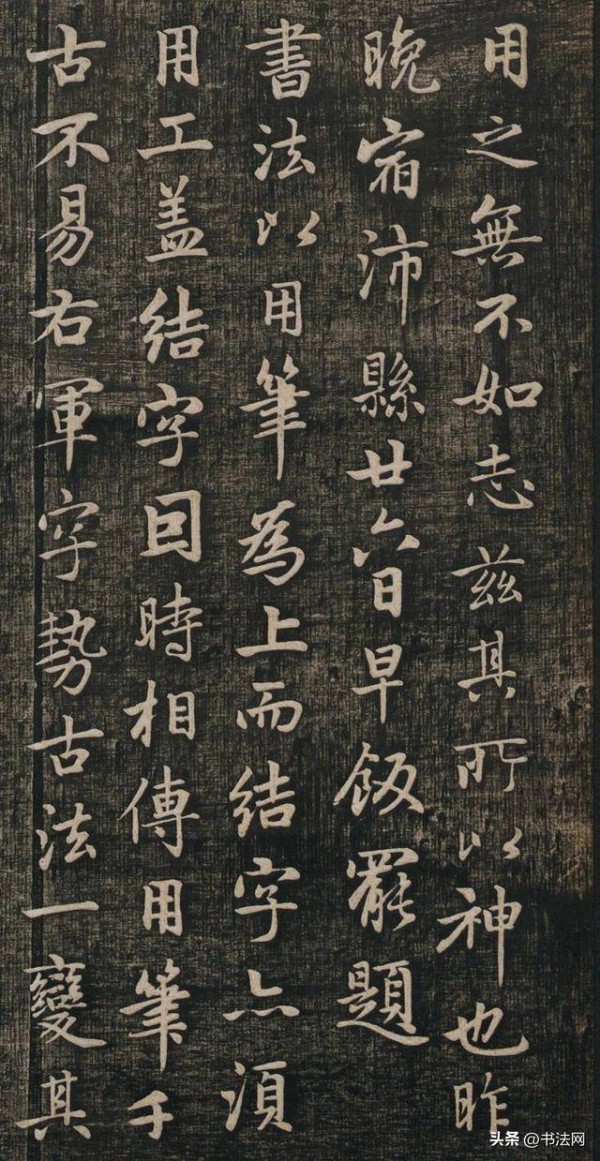 用之無不如志兹其所以神也昨
晚宿沛縣廿六日早飯罷題
書法以用筆為上而結字亦須
用工盖結字因時相傳用筆千
古不易右軍字勢古法一變其
头条 @书法网